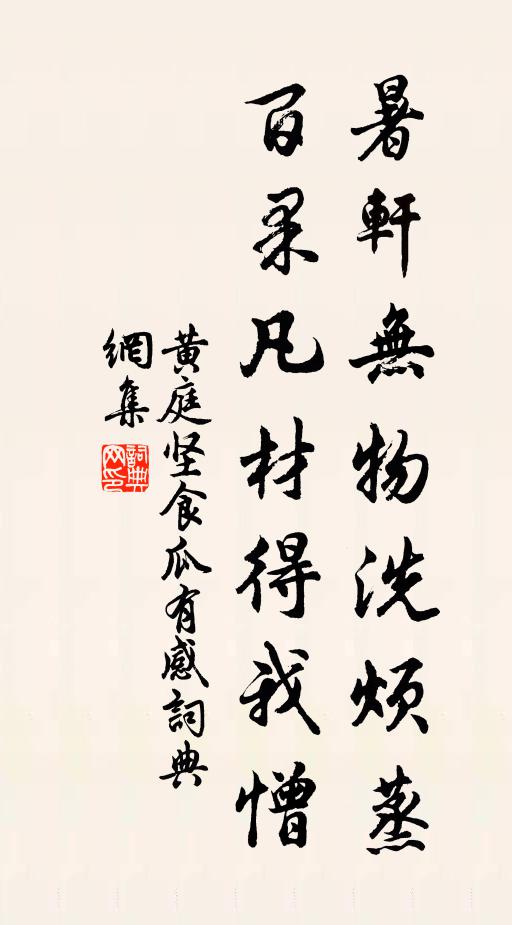 暑軒無物洗烦蒸
百果凡材得我憎
黄庭坚食瓜有感詞典
網集
詞典網印